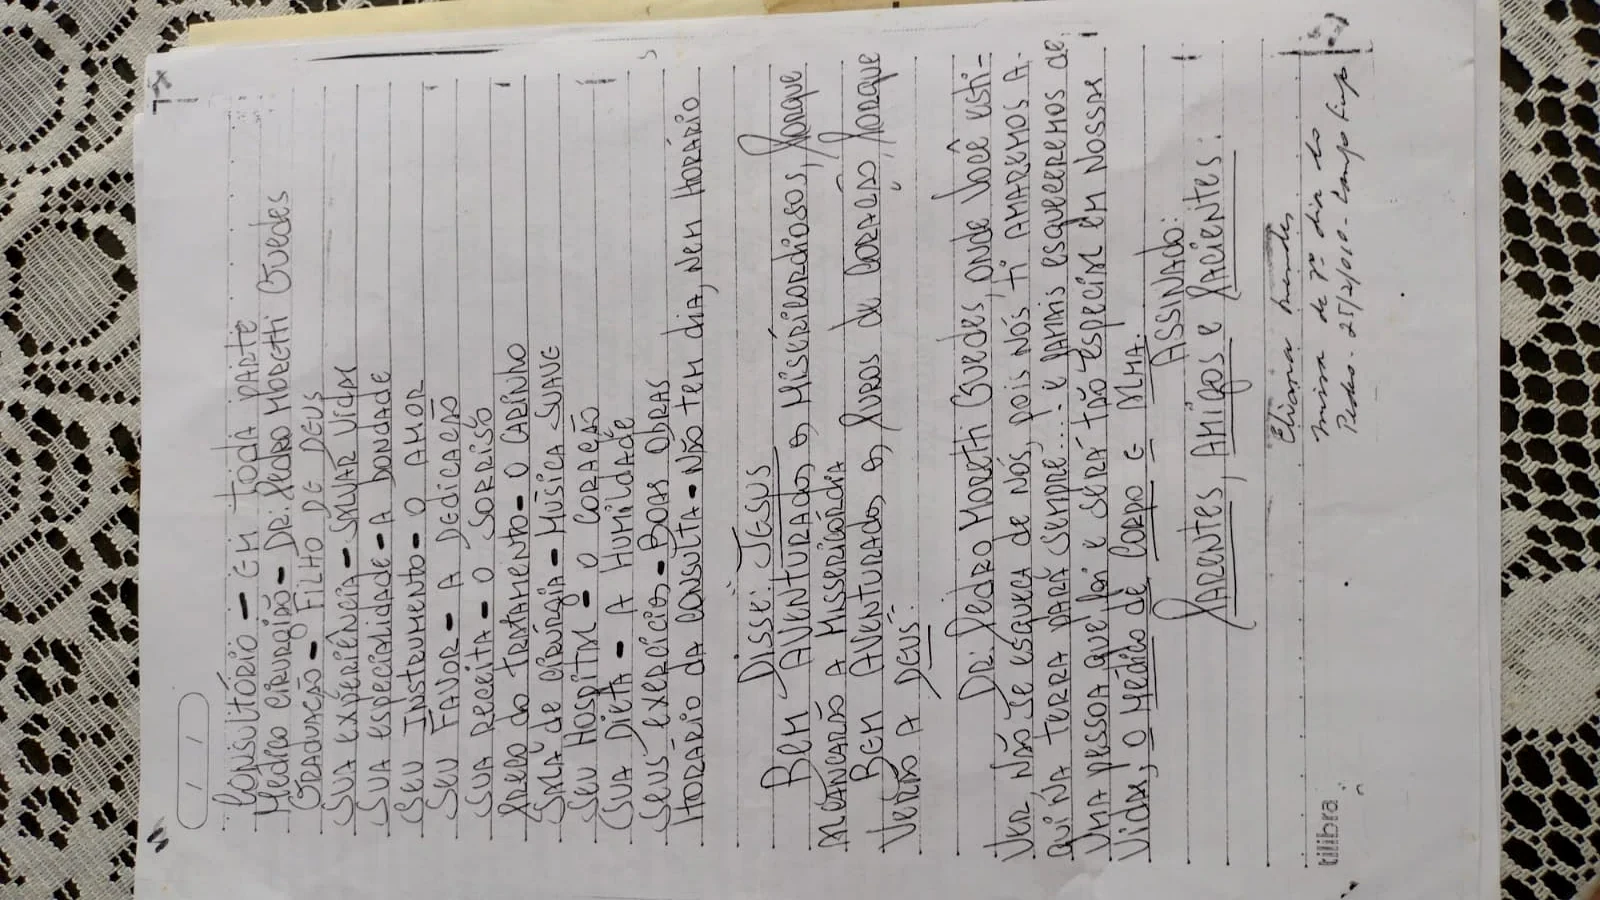 Consultório - Em toda parte
Médico cirurgião - Dr: Pedro Moretti Guedes
Graduação - Filho de Deus
Sua experiência - Salvar Vida
Sua especialidade - A bondade
Seu Instrumento - O Amor
Seu Favor - A Dedicação
Sua receita - O Sorriso
Preço do Tratamento - O Carinho
Sala de Cirúrgia - Música Suave
Seu Hospital - O Coração
Sua Dieta - A Humildade
Seus exercícios - Boas Obras
Horário da Consulta - Não tem dia, nem horário
Disse: Jesus
Bem Aventurados os Misericordiosos, Porque
Alcançarão a Misericórdia
Bem Aventurados os Puros de Coração, Porque
Verão a Deus.
Dr: Pedro Moretti Guedes, onde Você esti-
Ver, Não se esqueca de Nós, pois Nós ti Amaremos A-
qui Na Terra pará sempre..... e jamais esqueceremos de
Uma pessoa que foi e será tão especial em Nossas
Vidas, o Médico de Corpo e Alma.
Assinado:
Parentes, Amigos e Pacientes.
Eliana
missa de 7º dia do
Pedro - 25/2/010 - Campo
tilibra